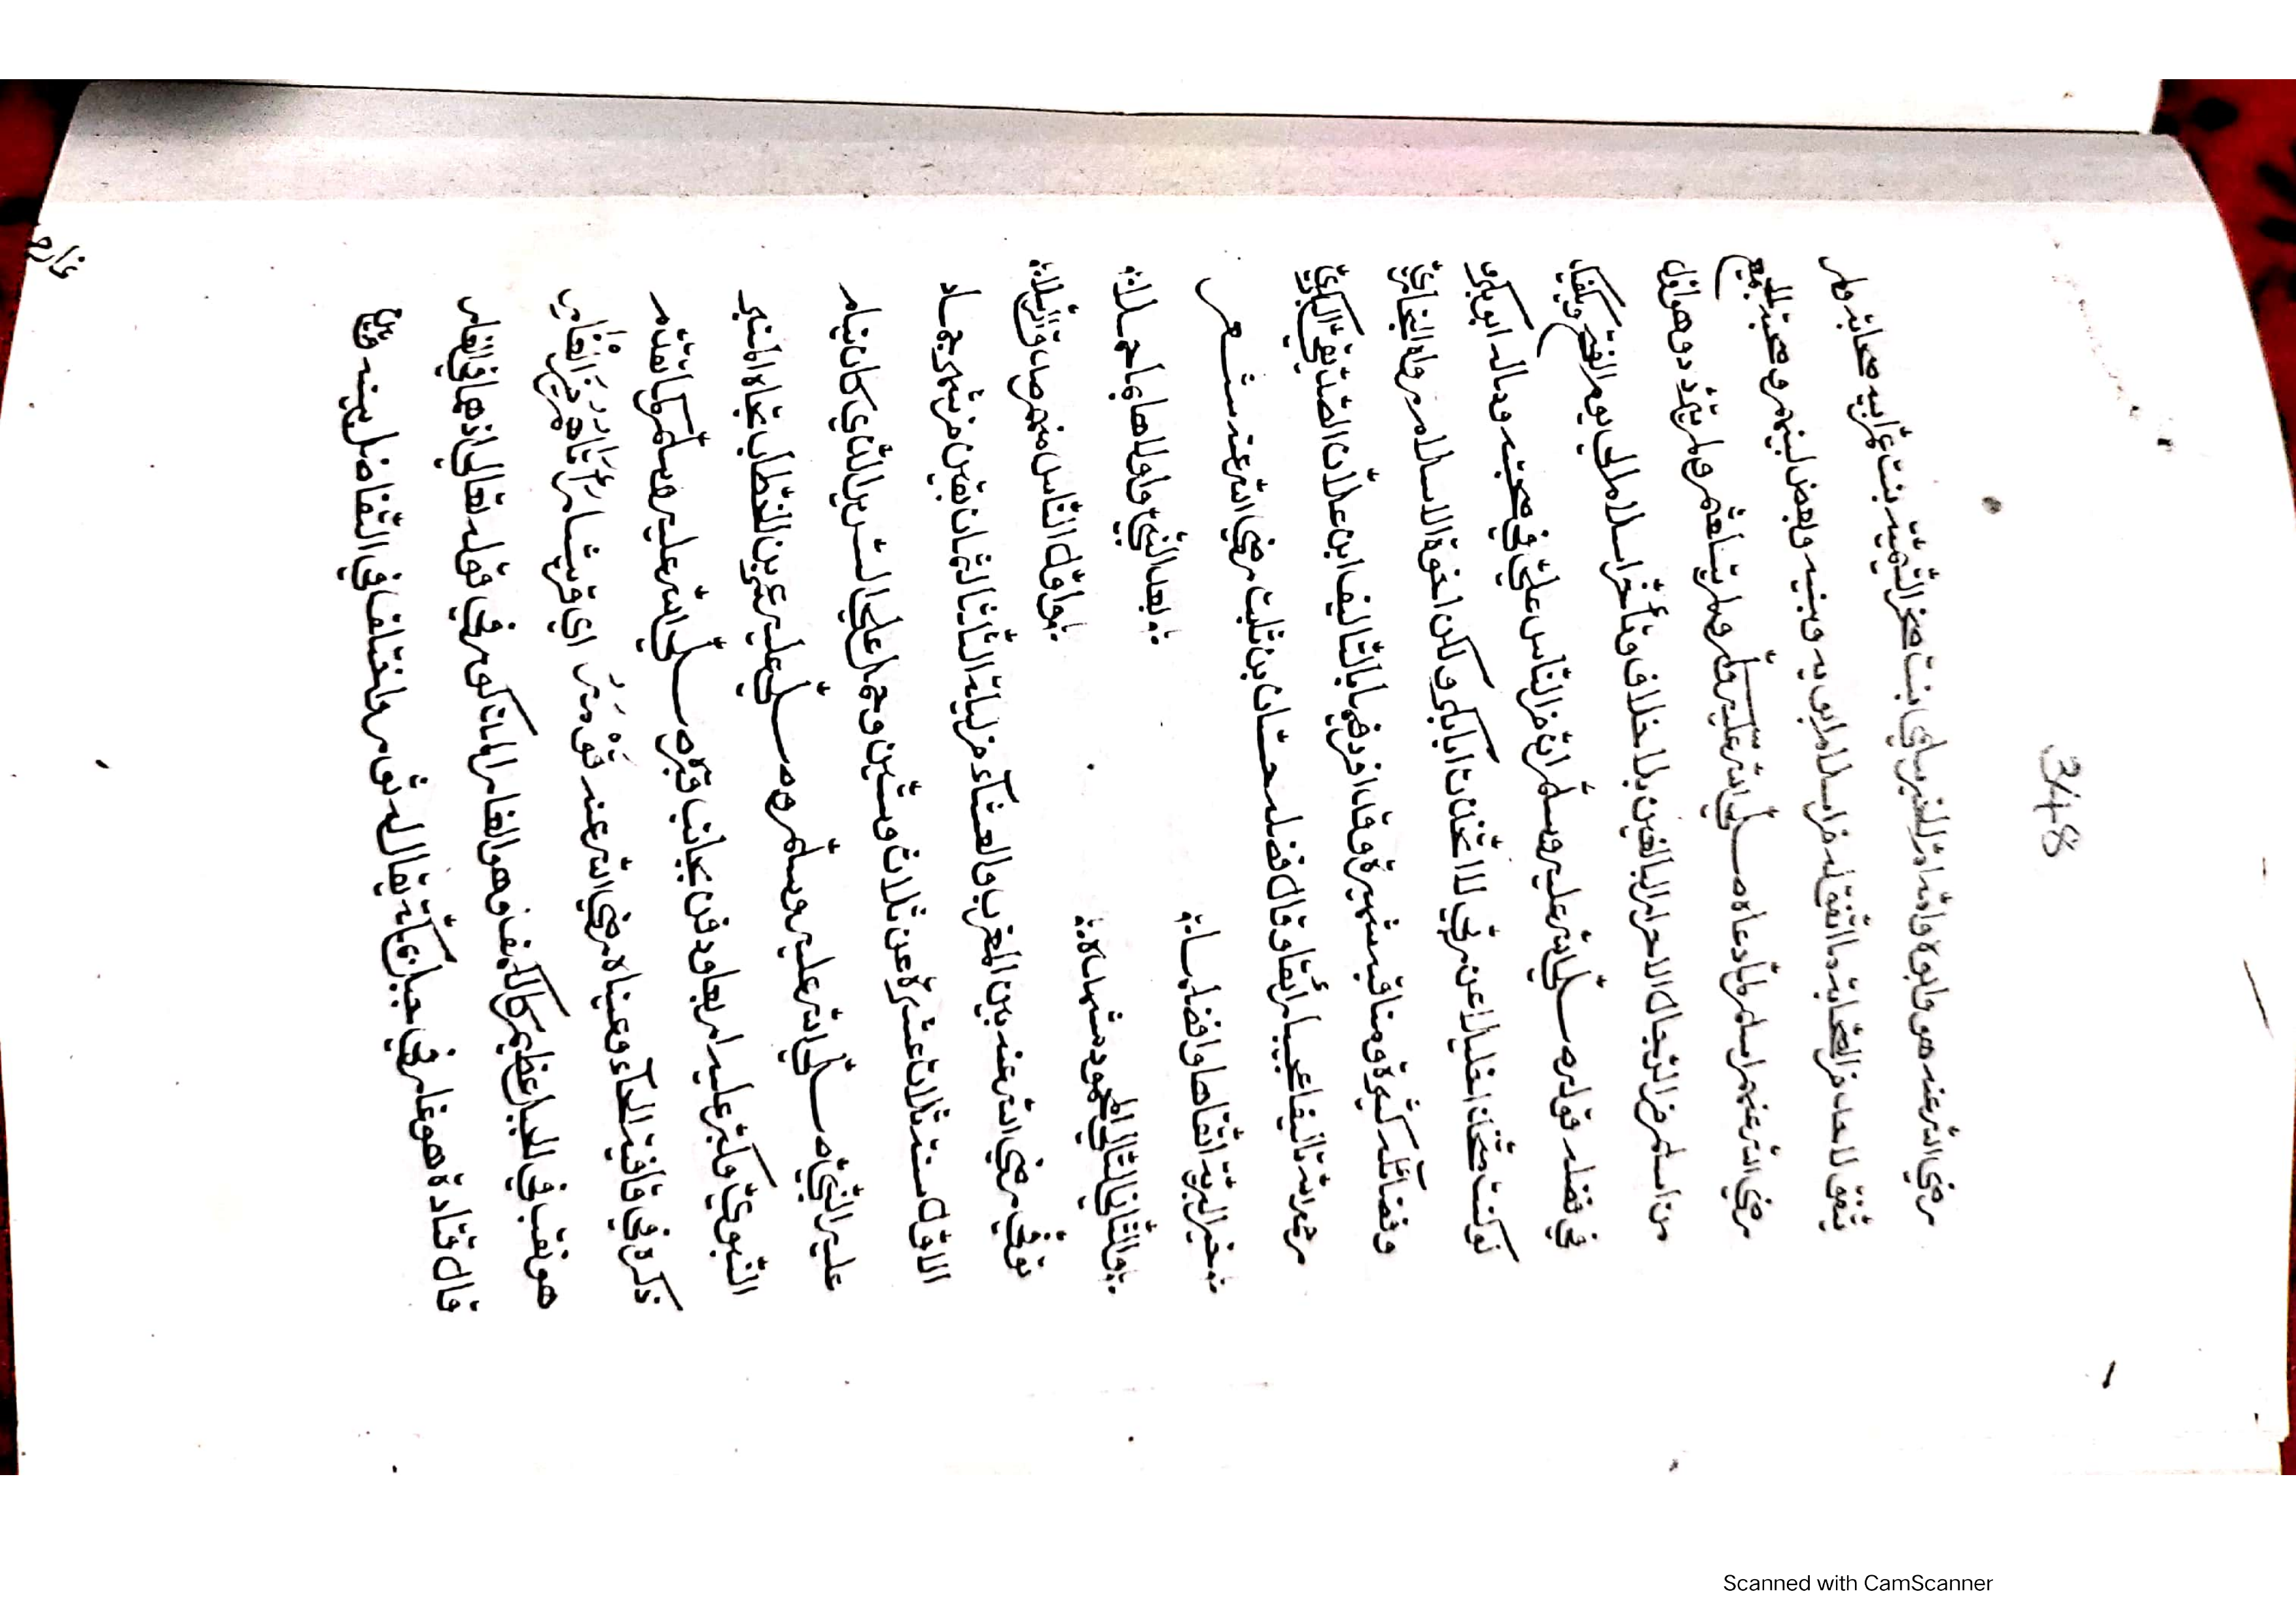 348
رضي الله عنه هو وابوه وامّه امّ الخير سلمى بنت صخر التّيميّة بنت عمّ ابيه صحابة ولم
يتّفق لاحد من الصّحابة ما اتّفق له من اسلام ابويه وبنيه وبعض بنيهم وصحبة الجميع
رضي الله عنهم اسلم لمّا دعاه صلّى الله عليه وسلّم ولم يتلعثم ولم يتردّد وهو اوّل
من اسلم من الرّجال الاحرار البالغين بلا خلاف وتأخّر اسلام ابي يوم الفتح ويكفيك
في فضله قوله صلّى الله عليه وسلّم انّ من امنّ النّاس عليّ في صحبته وماله ابو بكر
لو كنت متّخذا خليلا غير ربّي لاتّخذت ابا بكر ولكن اخوة الاسلام رواه البخاريّ
وفضائله كثيرة ومناقبه شهيرة وقد افردها بالتّاليف ابن علان الصّدّيقيّ البكريّ
رحمه الله تاليفا عجيبا رائقا وقال فضله حسّان بن ثابت رضي الله عنه شعر
خير البريّة اتقاها وافضلها بعد النّبيّ واولاها بما حملا
والثّاني التّالي المحمود مشهده واوّل النّاس منهم صدّق الرّسلا
توفّي رضي الله عنه بين المغرب والعشاء من ليلة الثّلاثا لثمان بقين من شهر جماد
الاوّل سنة ثلاث عشرة عن ثلاث وستّين وحمل على السّرير الّذي كان ينام
عليه النّبيّ صلّى الله عليه وسلّم وصلّى عليه عمر بن الخطّاب تجاه المنبر
النّبويّ وكبّر عليه اربعا ودفن بجانب قبره صلّى الله عليه وسلّم كما تقدّم
ذكره في قافية الحاء وعيناه رضي الله عنه قَوْمَرَ اي قريش
هو نقب في الجبل عظيم كالكهف وهو الغار المذكور في قوله تعالى اذ هما في الغار
قال قتادة هو غار في جبل بمكّة يقال له ثور واختلف في التّفاضل بينه وبين
غار
Scanned with CamScanner